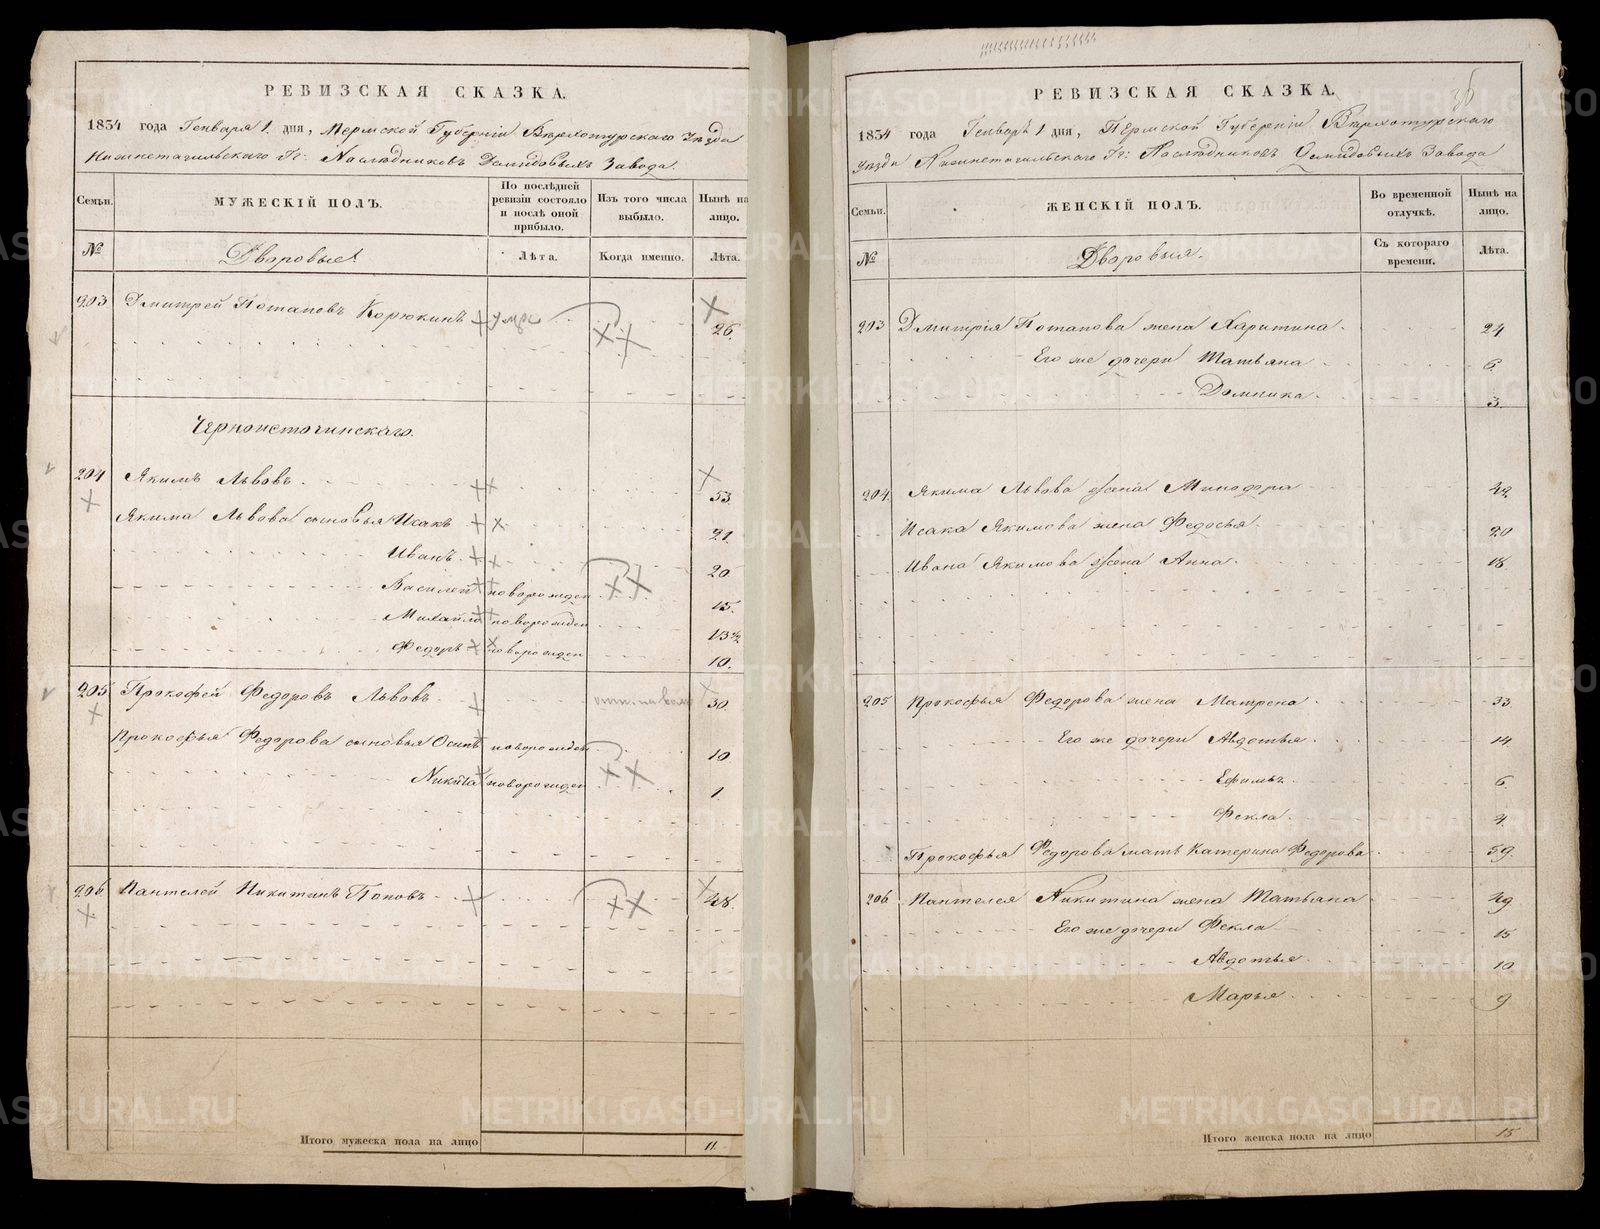 РЕВИЗСКАЯ СКАЗКА.
1834 года Генваря 1. дня, Пермской Губерніи Верхотурскаго Уезда
Нижнетагильскаго Гг: Наследниковъ Демидовыхъ Завода.
Семьи.
МУЖЕСКІЙ ПОЛЪ.
По послѣдней ревизіи состояло и послѣ оной прибыло.
Изъ того числа выбыло.
Нынѣ на лицо.
№
Дворовые.
Лѣта.
Когда именно.
Лѣта.
203 Дмитрей Потаповъ Корюкинъ 26.
Черноисточинскаго.
204 Якимъ Львовъ. 53
Якима Львова сыновья Исакъ 21.
Иванъ. 20
Василей новорожден 15.
Михайло новорожден 13 ½
Федоръ новорожден 10.
205 Прокофей Федоровъ Львовъ. 30.
Прокофья Федорова сыновья Осипъ новорожден 10
Никита новорожден 1.
206 Пантелей Никитинъ Поповъ 48.
Итого мужеска пола на лицо 11.
36
РЕВИЗСКАЯ СКАЗКА.
1834 года Генваря 1 дня, Пермской Губерніи Верхотурскаго
уезда Нижнетагильскаго Гг: Наследниковъ Демидовыхъ Завода
Семьи.
ЖЕНСКІЙ ПОЛЪ.
Во временной отлучкѣ.
Нынѣ на лицо.
№
Дворовыя.
Съ котораго времени.
Лѣта.
203 Дмитрія Потапова жена Харитина. 24
Его же дочери Татьяна 6.
Домника. 3.
204. Якима Львова жена Минодора 42
Исака Якимова жена Федосья. 20
Ивана Якимова жена Анна. 18
205 Прокофья Федорова жена Матрена 33
Его же дочери Авдотья. 14
Ефимья. 6
Фекла. 4.
Прокофья Федорова мать Катерина Федорова 59.
206 Пантелея Никитина жена Татьяна 49
Его же дочери Фекла 15
Авдотья. 10
Марья. 9
Итого женска пола на лицо 15
METRIKI.GASO-URAL.RU